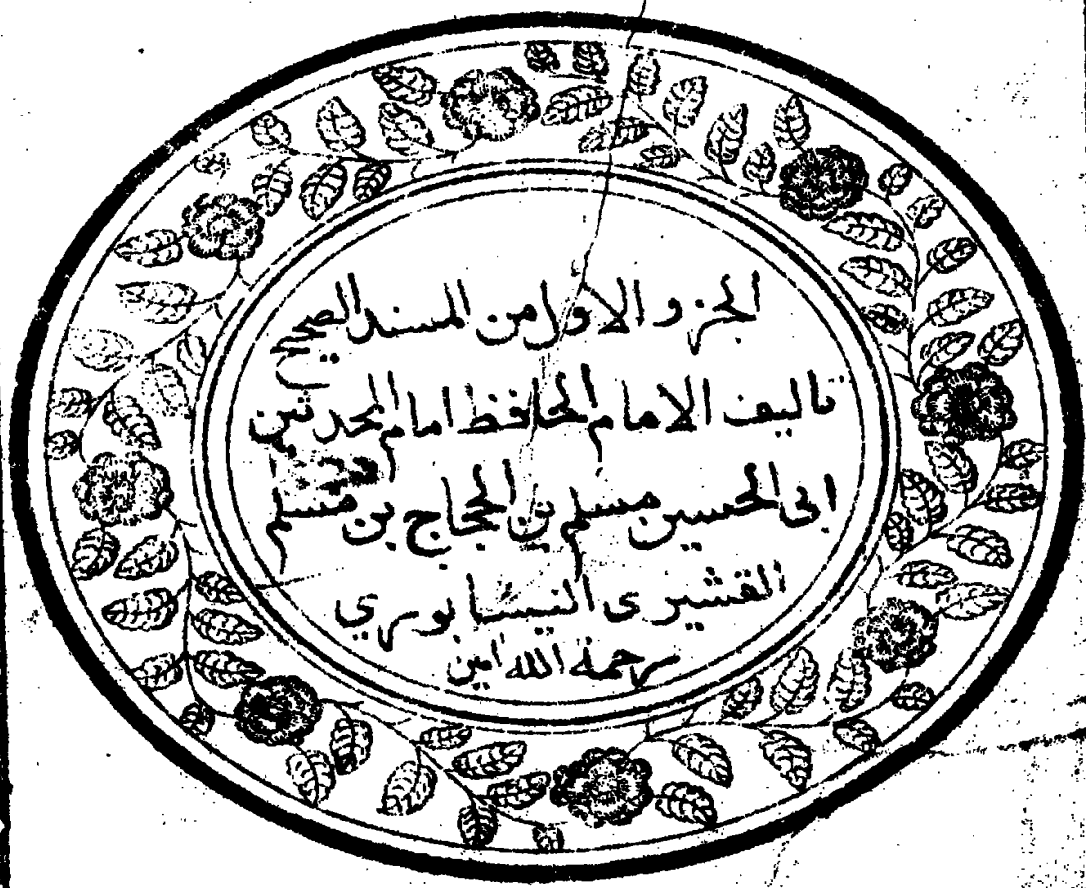 الجزو الاول من المسند الصحيح
تاليف الامام الحافظ امام المحدثين
ابى الحسين مسلم بن الحجاج بن مسلم
القشيرى النيسابوري
رحمه الله امين